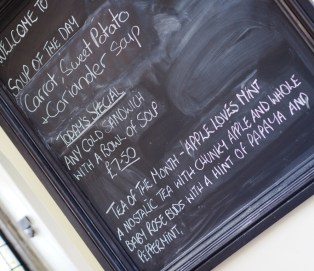 WELCOME TO
SOUP OF THE DAY
Carrot, Sweet Potato
+ Coriander Soup
TODAYS SPECIAL
ANY COLD SANDWICH
WITH A BOWL OF SOUP
£7.50
TEA OF THE MONTH - APPLE LOVES MINT
A NOSTALIC TEA WITH CHUNKY APPLE AND WHOLE
BABY ROSE BUDS WITH A HINT OF PAPAYA AND
PEPPERMINT.